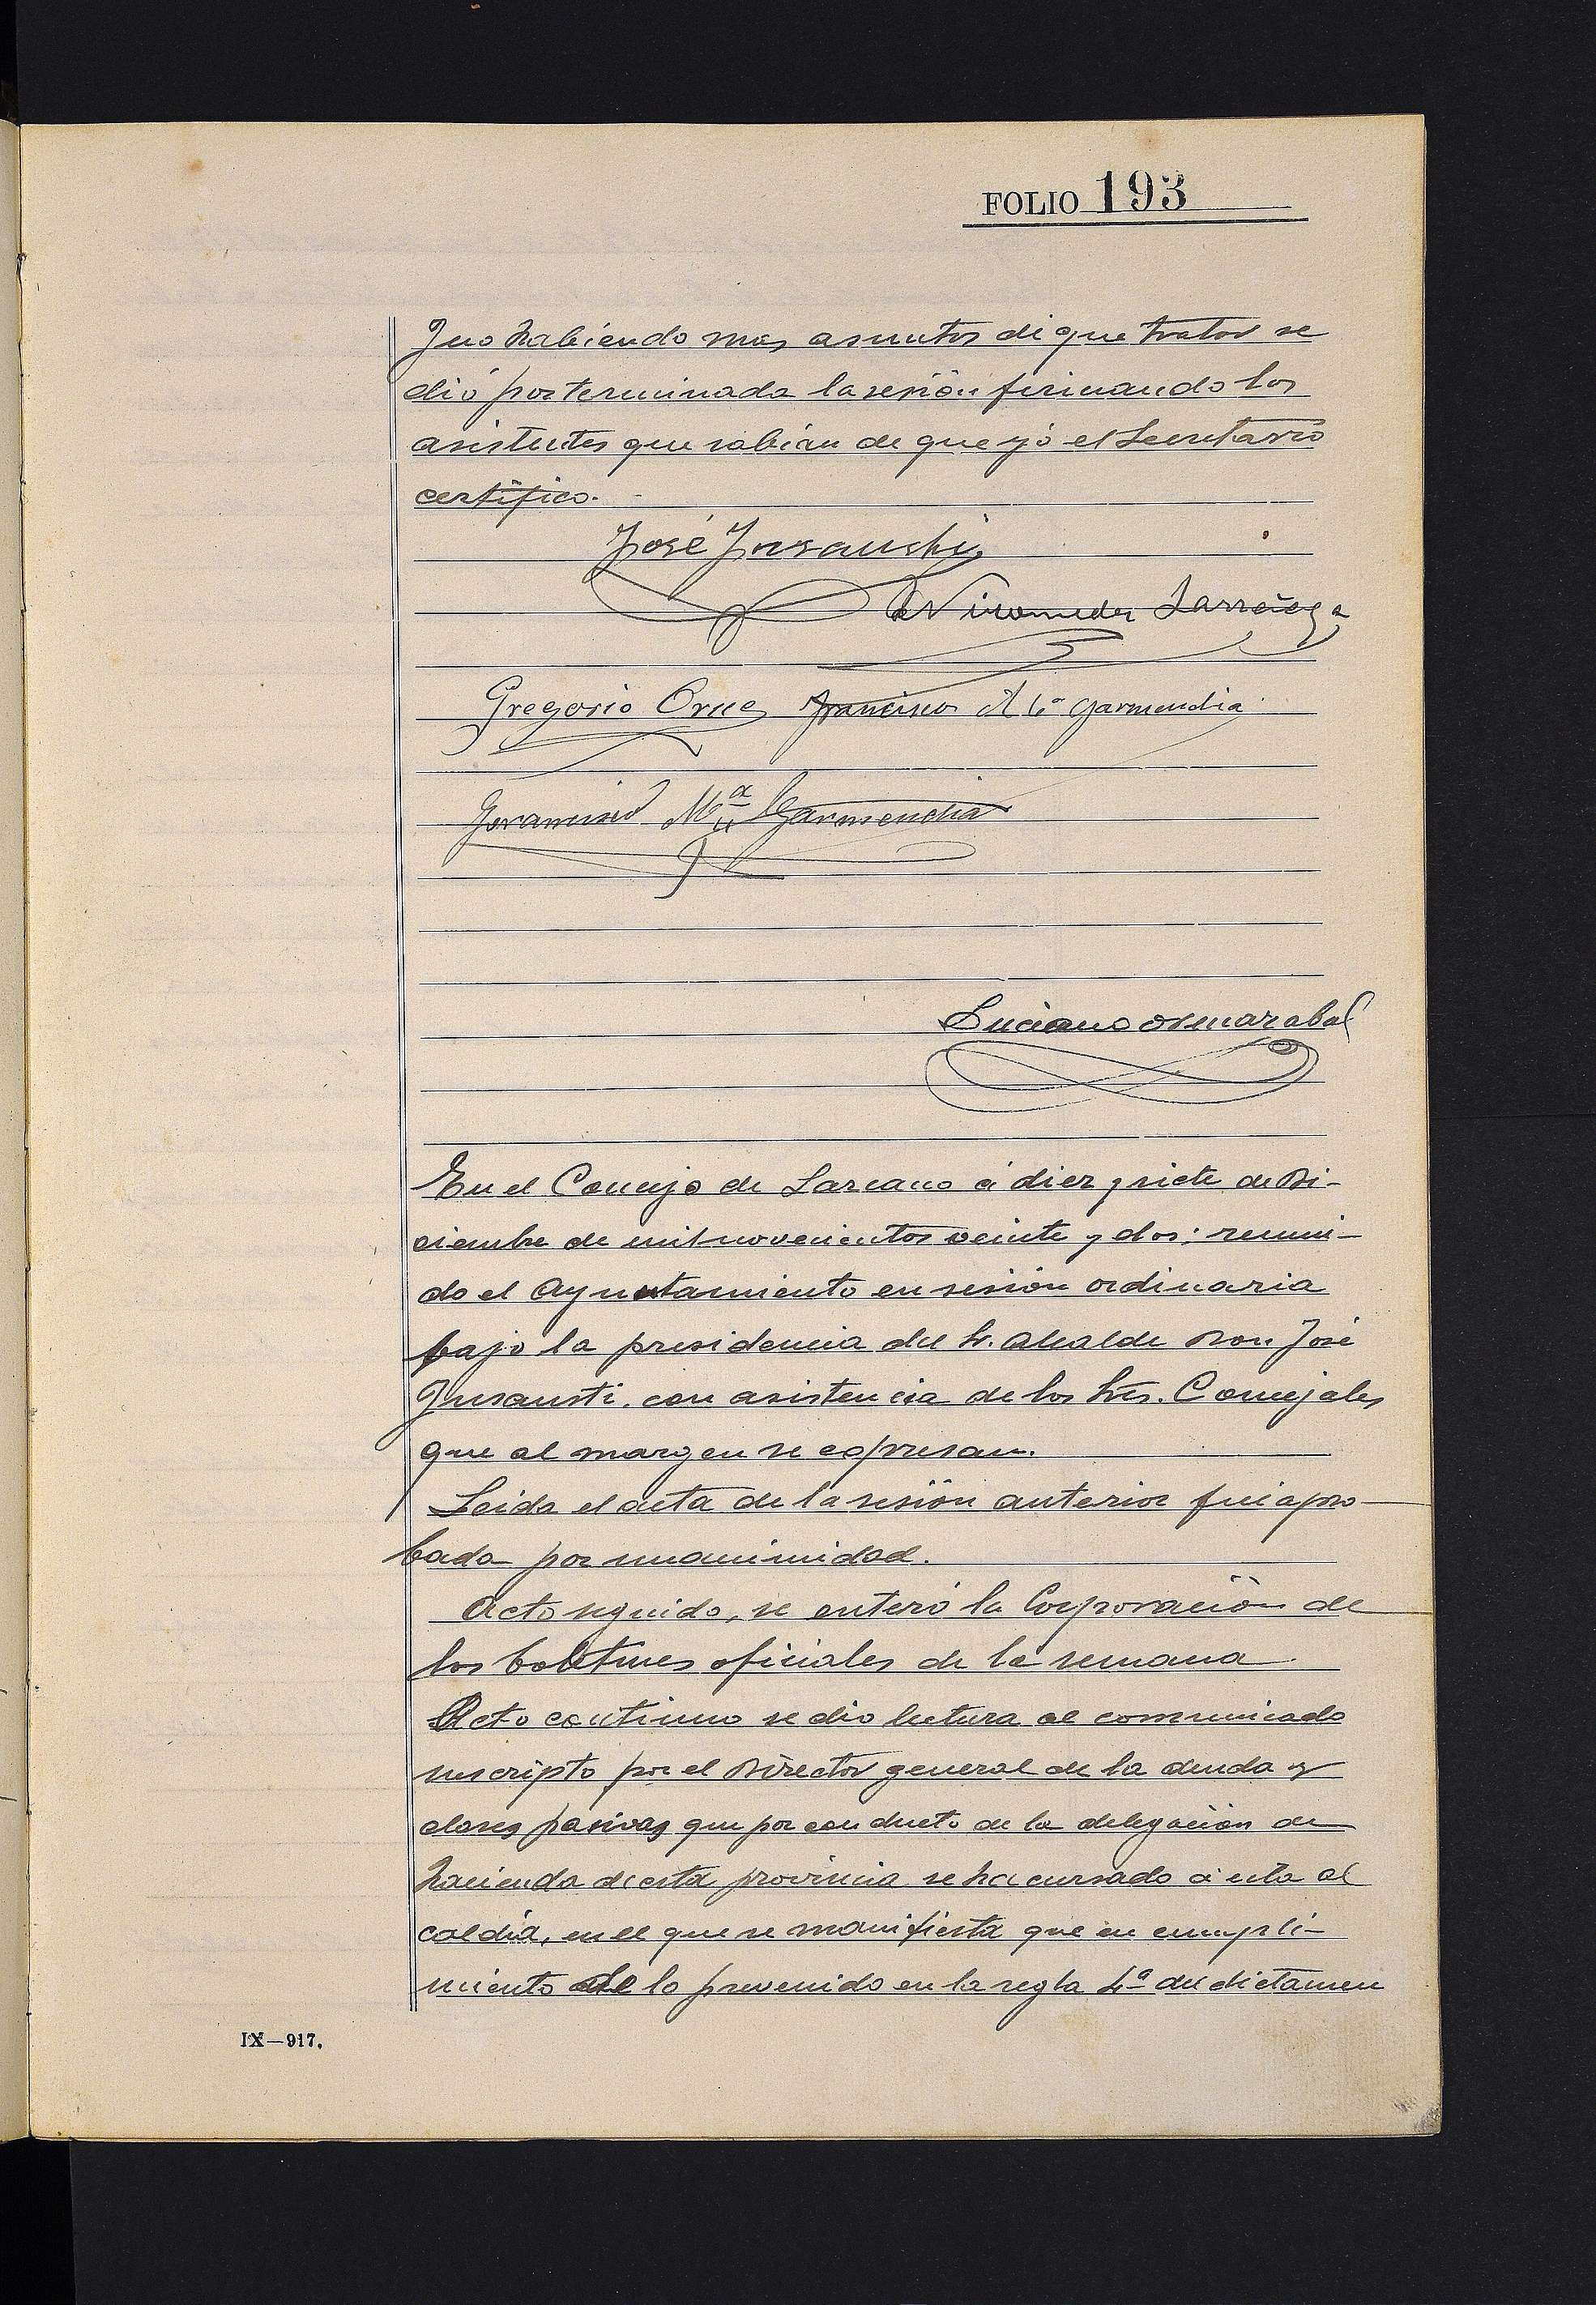 FOLIO 193
Y no habiendo mas asuntos de que tratar se
dió por terminada la sesión firmando los
asistentes que sabian de que yó el Secretario
certifico.
José Insausti
Nicomedes Larrañaga
Gregorio Orue Francisco Garmendia
Mª Garmendia
Luciano
En el Concejo de Lazcano á diez y siete de Di-
ciembre de mil novecientos veinte y dos; reuni-
do el Ayuntamiento en sesión ordinaria
bajo la presidencia del Sr. Alcalde Don José
Insausti, con asistencia de los Srs. Concejales
que al margen se expresan.
Leida el acta de la sesión anterior fué apro-
bada por unanimidad.
Acto seguido, se enteró la Corporación de
los boletines oficiales de la semana.
Acto continuo se dio lectura al comunicado
suscripto por el Director general de la deuda y
clases pasivas que por conducto de la delegación de
hacienda de esta provincia se ha cursado á esta al
caldia, en el que se manifiesta que en cumpli-
miento de lo prevenido en la regla 4ª del dictamen
IX—917.